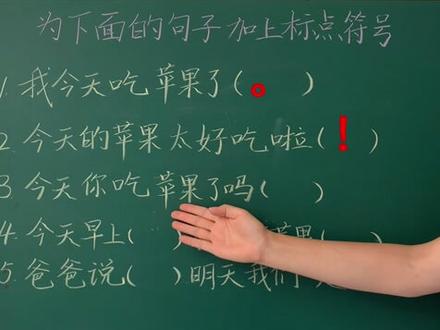 为下面的句子加上标点符号
1.我今天吃苹果了(。)
2.今天的苹果太好吃啦(！)
3.今天你吃苹果了吗( )
4.今天早上( )果( )
5.爸爸说( )明天我们( )